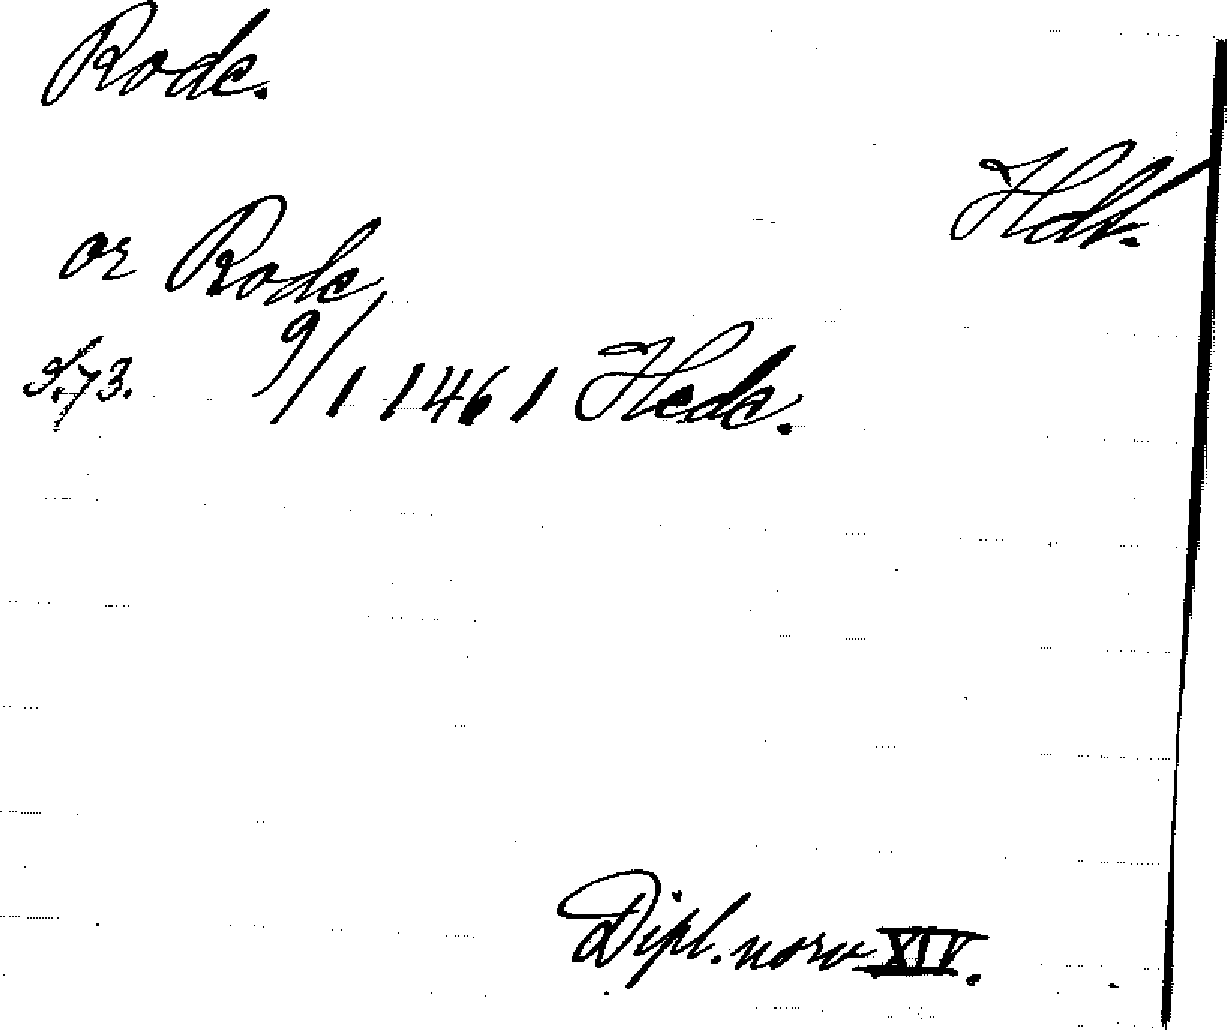 Rode.
Hdk.
or Rode
S.73. 9/1 1461 Hede.
Dipl. norv XIV.